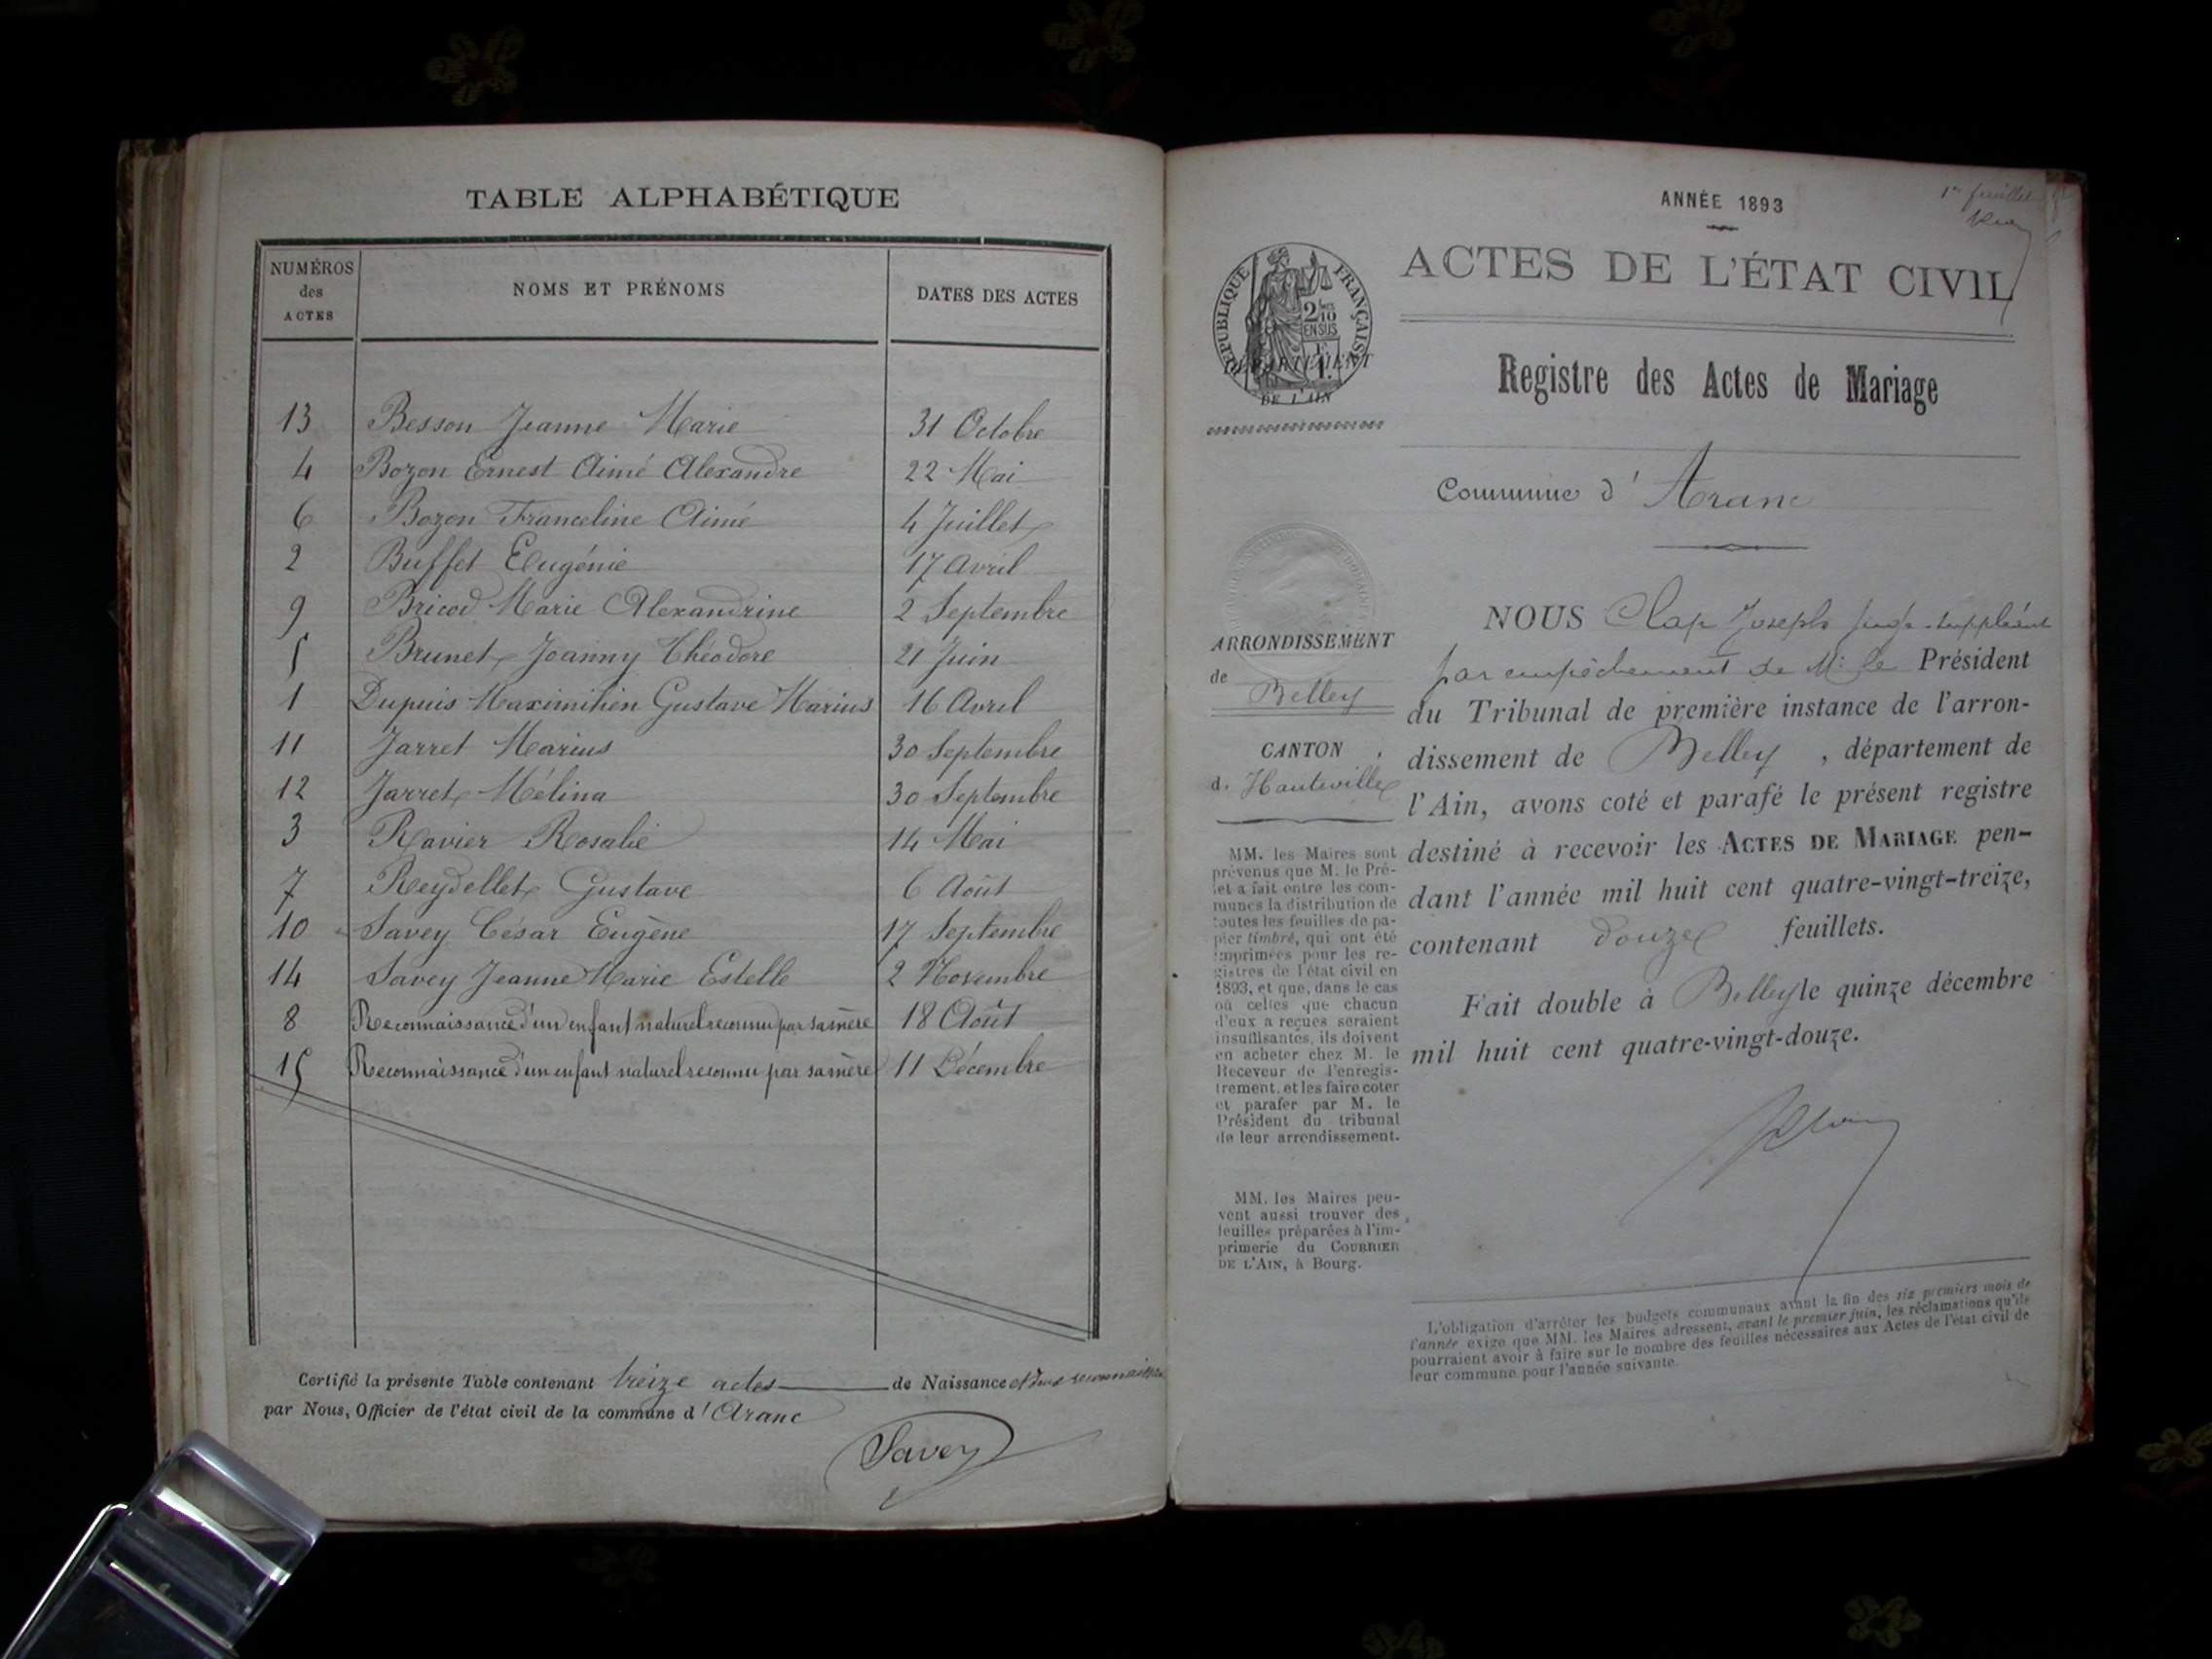 TABLE ALPHABÉTIQUE
NUMÉROS des ACTES
NOMS ET PRÉNOMS
DATES DES ACTES
13 Besson Jeanne Marie 31 Octobre
4 Bozon Ernest Aimé Alexandre 22 Mai
6 Bozon Franceline Aimé 4 Juillet
2 Buffet Eugénie 17 Avril
9 Bricod Marie Alexandrine 2 Septembre
5 Brunet Joanny Théodore 21 Juin
1 Dupuis Maximilien Gustave Marius 16 Avril
11 Jarret Marius 30 Septembre
12 Jarret Mélina 30 Septembre
3 Ravier Rosalie 14 Mai
7 Reydellet Gustave 6 Août
10 Savey César Eugène 17 Septembre
14 Savey Jeanne Marie Estelle 2 Novembre
8 Reconnaissance d'un enfant naturel reconnu par sa mère 18 Août
15 Reconnaissance d'un enfant naturel reconnu par sa mère 11 Décembre
Certifié la présente Table contenant treize actes de Naissance et deux
par Nous, Officier de l'état civil de la commune d'Aranc
Savey
1er feuillet
ANNÉE 1893
ACTES DE L'ÉTAT CIVIL
RÉPUBLIQUE FRANÇAISE
2/10
EN SUS
DÉPARTEMENT
DE L'AIN
Registre des Actes de Mariage
Commune d'Aranc
ARRONDISSEMENT
de Belley
CANTON
d. Hauteville
MM. les Maires sont
prévenus que M. le Pré-
fet a fait entre les com-
munes la distribution de
toutes les feuilles de pa-
pier timbré, qui ont été
imprimées pour les re-
gistres de l'état civil en
1893, et que, dans le cas
où celles que chacun
d'eux a reçues seraient
insuffisantes, ils doivent
en acheter chez M. le
Receveur de l'enregis-
trement, et les faire coter
et parafer par M. le
Président du tribunal
de leur arrondissement.
MM. les Maires peu-
vent aussi trouver des
feuilles préparées à l'im-
primerie du COURRIER
DE L'AIN, à Bourg.
NOUS Clap Joseph juge-suppléant
par empêchement de M. le Président
du Tribunal de première instance de l'arron-
dissement de Belley, département de
l'Ain, avons coté et parafé le présent registre
destiné à recevoir les ACTES DE MARIAGE pen-
dant l'année mil huit cent quatre-vingt-treize,
contenant douze feuillets.
Fait double à Belley le quinze décembre
mil huit cent quatre-vingt-douze.
L'obligation d'arrêter les budgets communaux avant la fin des six premiers mois de
l'année exige que MM. les Maires adressent, avant le premier juin, les réclamations qu'ils
pourraient avoir à faire sur le nombre des feuilles nécessaires aux Actes de l'état civil de
leur commune pour l'année suivante.